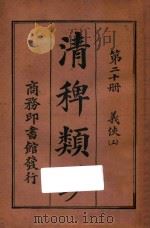 第二十册 義俠(上)
清稗類
商務印書館發行
www.ertongbook.com